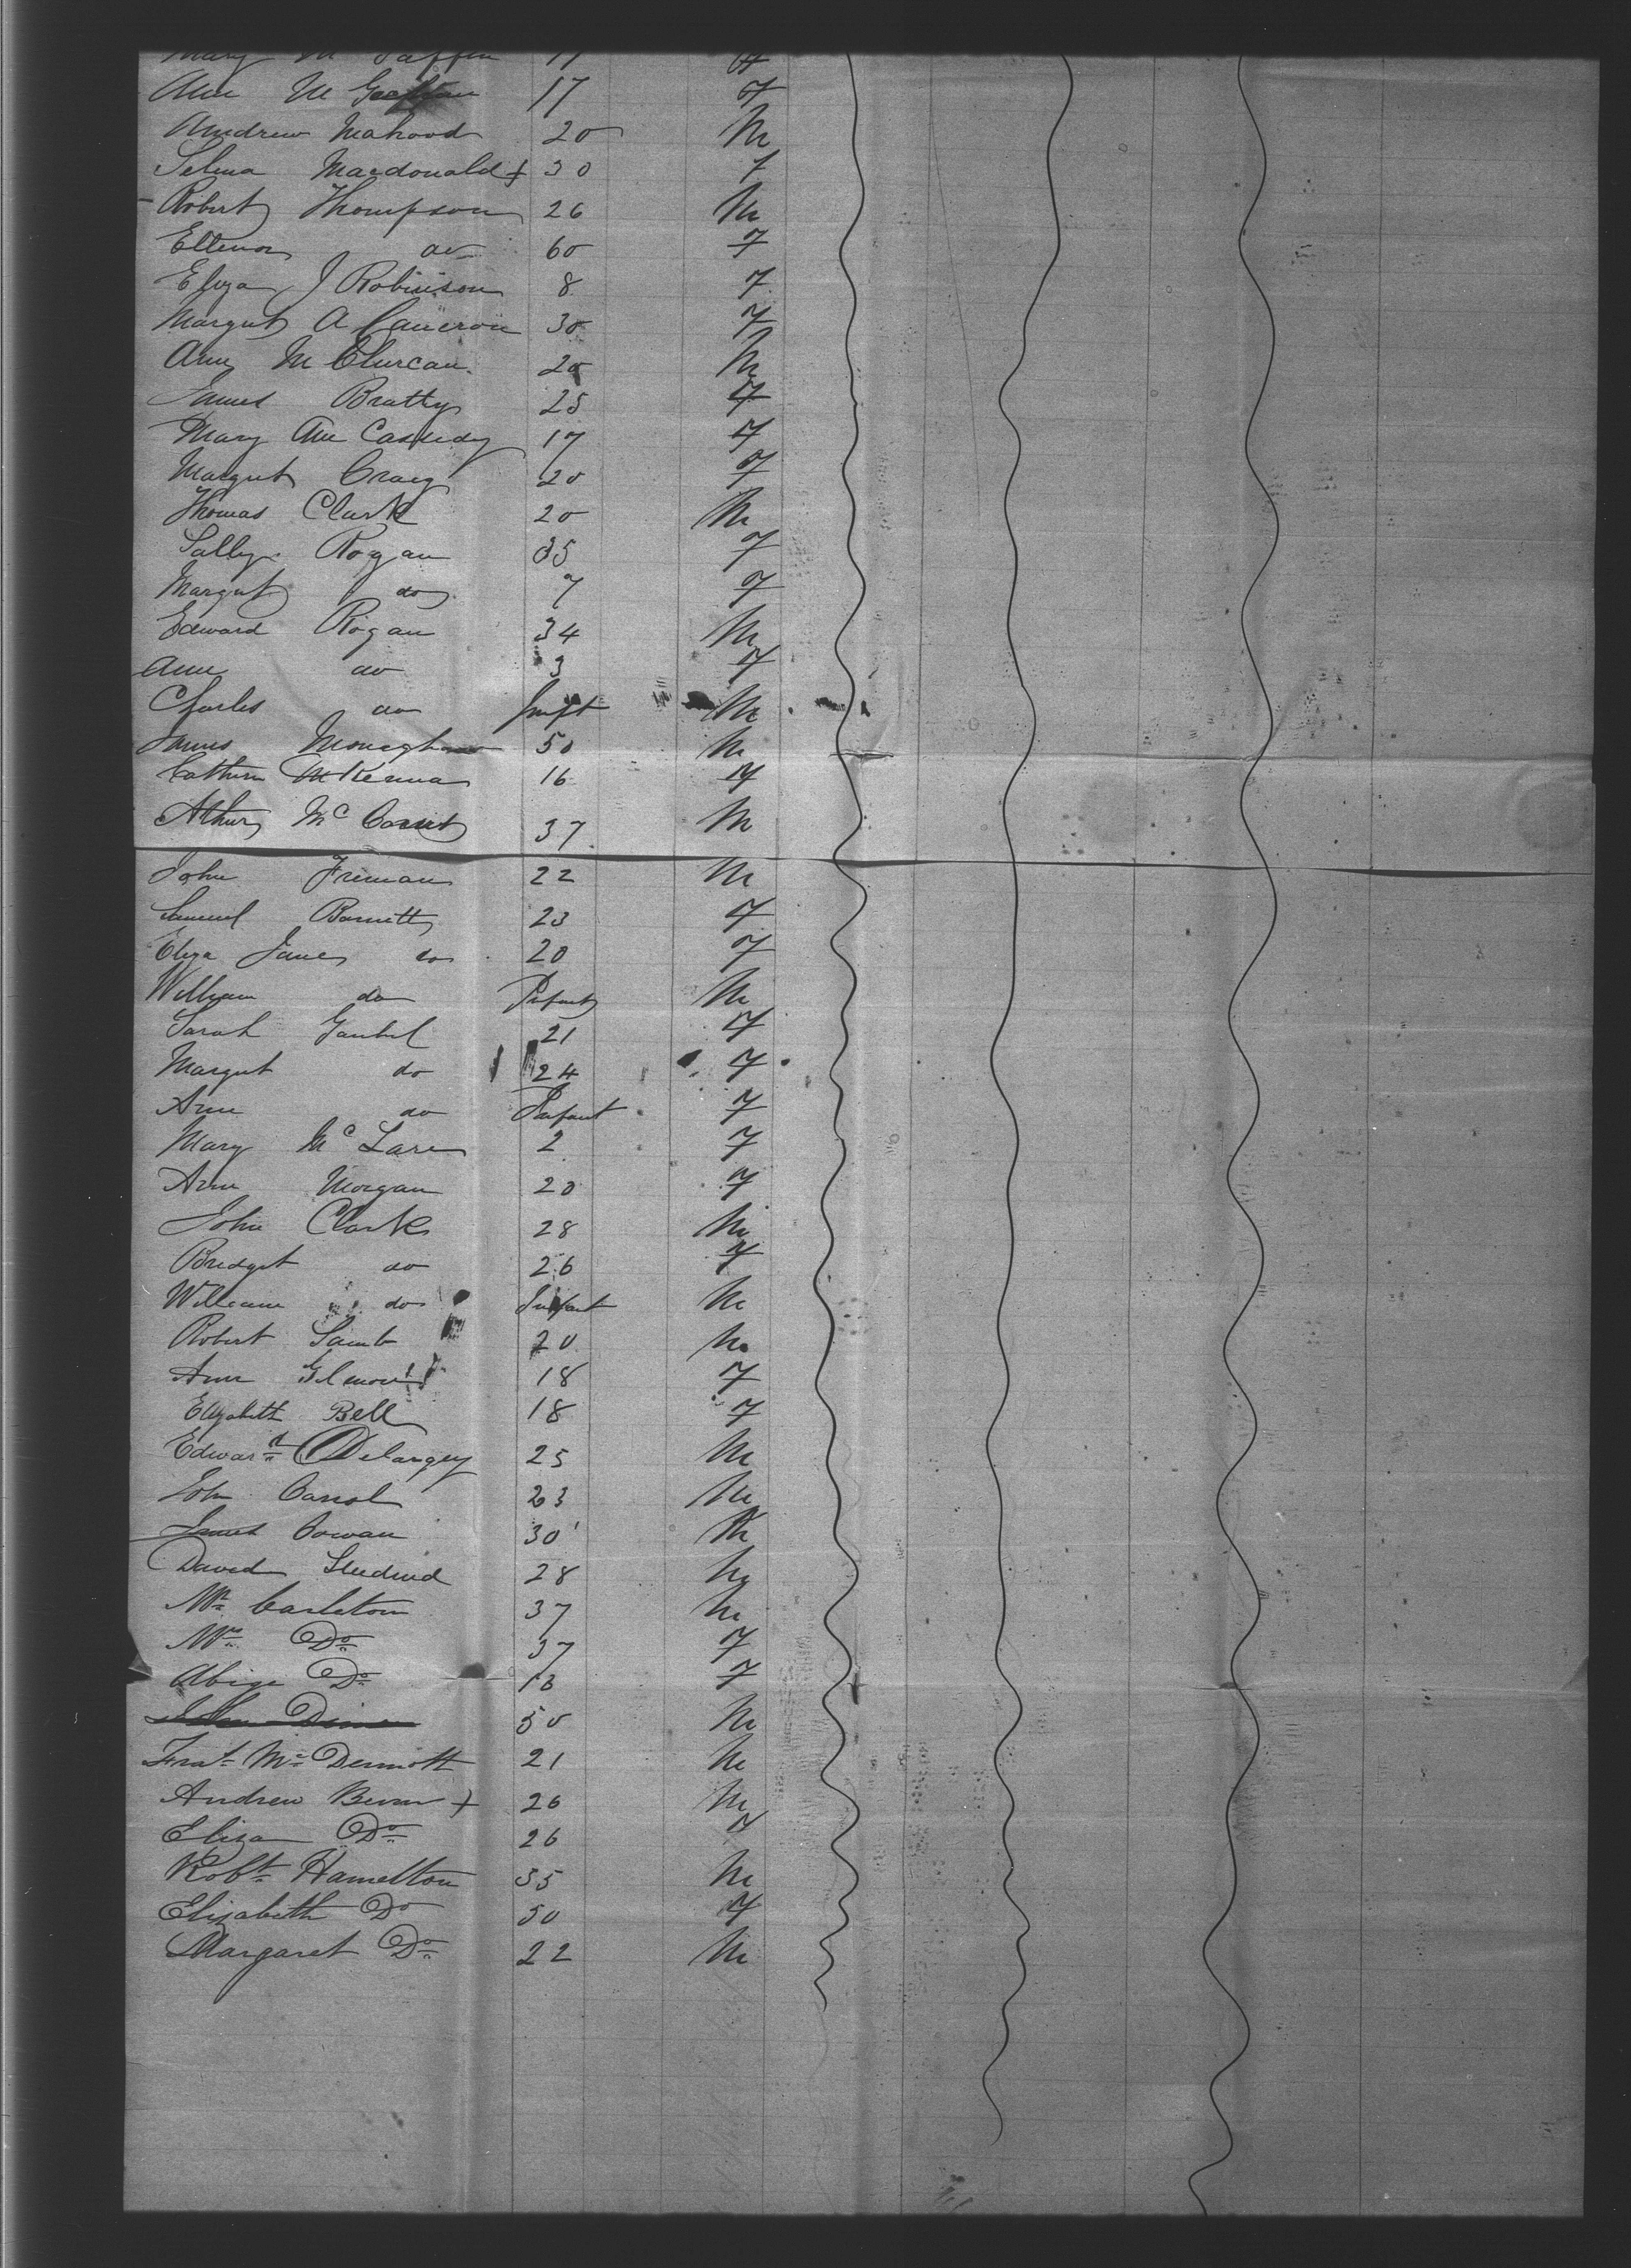 Mary M Gaffin 17 f
Ann M 17 f
Andrew Mahood 20 M
Selina Macdonald + 30 f
Robert Thompson 26 M
Ellenor do 60 f
Eliza J Robinson 8 f
Margret A Cameron 30 f
Ann M Clurcan 20 M
James Bratty 25 f
Mary Ann Cassedy 17 f
Margret Craig 20 f
Thomas Clark 20 M
Sally Rogan 35 f
Margret do 7 f
Edward Rogan 34 M
Ann do 3 f
Charles do Inft M
James Monaghan 50 M
Cathern McKenna 16 f
Arthur Mc 37 M
John Friman 22 M
Samuel Barnett 23 f
Eliza Jane do 20 f
William do Infant M
Sarah 21 f
Margret do 24 f
Ann do Infant f
Mary Mc Laren 2 f
Ann Morgan 20 f
John Clark 28 M
Bridget do 26 f
William do Infant M
Robert Lamb 20 M
Ann Gilmour 18 f
Elizabeth Bell 18 f
Edward Delargey 25 M
John Carrol 23 M
James Cowan 30 M
David 28 M
Mr Carleton 37 M
Mrs Do 37 f
Abige Do 13 f
John 50 M
Frat Mc Dermott 21 M
Andrew Bevan + 26 M
Eliza Do 26 f
Robt Hamelton 55 M
Elizabeth Do 50 f
Margaret Do 22 M